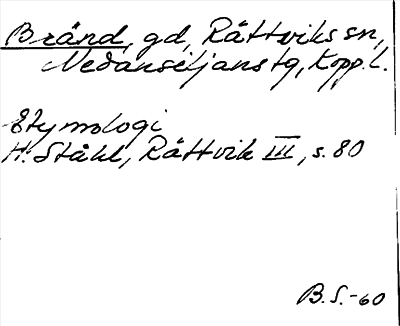 Bränd, gd, Rättviks sn,
Nedansiljans tg, Kopp. l.
Etymologi
H. Ståhl, Rättvik III, s. 80
B.S.-60